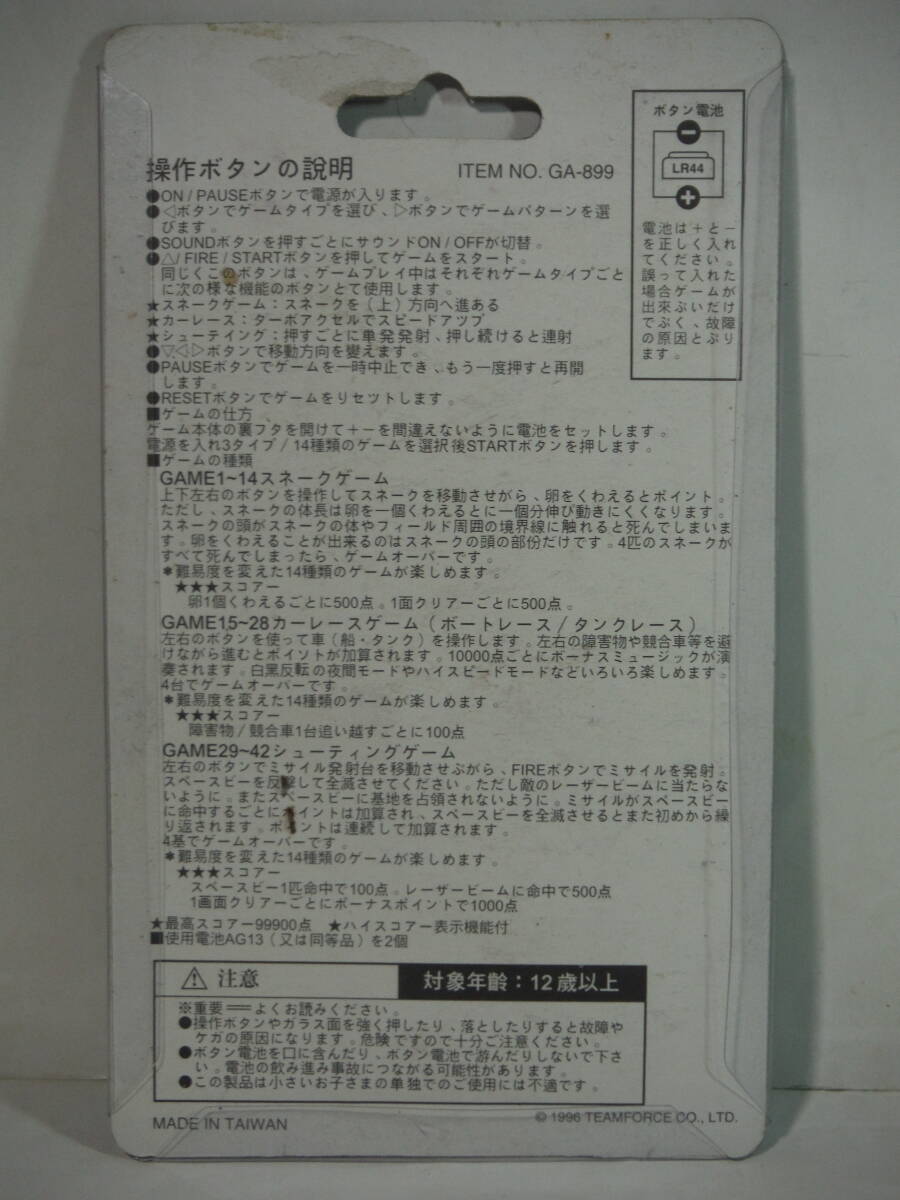 操作ボタンの説明
ITEM NO. GA-899
●ON / PAUSEボタンで電源が入ります。
●◁ボタンでゲームタイプを選び、▷ボタンでゲームパターンを選
びます。
●SOUNDボタンを押すごとにサウンドON / OFFが切替。
●△/ FIRE / STARTボタンを押してゲームをスタート。
同じくこのボタンは、ゲームプレイ中はそれぞれゲームタイプごと
に次の様な機能のボタンとて使用します。
★スネークゲーム：スネークを（上）方向へ進ある
★カーレース：ターボアクセルでスピードアツプ
★シューテイング：押すごとに単発発射、押し続けると連射
●▽◁▷ボタンで移動方向を變えます。
●PAUSEボタンでゲームを一時中止でき、もう一度押すと再開
します。
●RESETボタンでゲームをりセットします。
■ゲームの仕方
ゲーム本体の裏フタを開けて＋－を間違えないように電池をセットします。
電源を入れ3タイプ / 14種類のゲームを選択後STARTボタンを押します。
■ゲームの種類
GAME1~14スネークゲーム
上下左右のボタンを操作してスネークを移動させがら、卵をくわえるとポイント。
ただし、スネークの体長は卵を一個くわえるとに一個分伸び動きにくくなります。
スネークの頭がスネークの体やフィールド周囲の境界線に触れると死んでしまいま
す。卵をくわえることが出来るのはスネークの頭の部份だけです。4匹のスネークが
すべて死んでしまったら、ゲームオーバーです。
＊難易度を変えた14種類のゲームが楽しめます。
★★★スコアー
卵1個くわえるごとに500点。1面クリアーごとに500点。
GAME15~28カーレースゲーム（ボートレース / タンクレース）
左右のボタンを使って車（船・タンク）を操作します。左右の障害物や競合車等を避
けながら進むとポイソトが加算されます。10000点ごとにボーナスミュージックが演
奏されます。白黒反転の夜間モードやハイスピードモードなどいろいろ楽しめます。
4台でゲームオーバーです。
＊難易度を変えた14種類のゲームが楽しめます。
★★★スコアー
障害物 / 競合車1台追い越すごとに100点
GAME29~42シューティングゲーム
左右のボタンでミサイル発射台を移動させぶがら、FIREボタンでミサイルを発射。
スペースビーを反撃して全滅させてください。ただし敵のレーザービームに当たらな
いように。またスペースビーに基地を占領されないように。ミサイルがスペースビー
に命中するごとにポイントは加算され、スペースビーを全滅させるとまた初めから繰
り返されます。ポイントは連続して加算されます。
4基でゲームオーバーです。
＊難易度を変えた14種類のゲームが楽しめます。
★★★スコアー
スペースビー1匹命中で100点。レーザービームに命中で500点
1画面クリアーごとにボーナスポイントで1000点
★最高スコアー99900点　★ハイスコアー表示機能付
■使用電池AG13（又は同等品）を2個
ボタン電池
－
LR44
＋
電池は＋と－
を正しく入れ
てください。
誤って入れた
場合ゲームが
出来ぶいだけ
でぶく、故障
の原因とぶり
ます。
⚠ 注意
対象年齢：12歳以上
※重要＝＝よくお読みください。
●操作ボタンやガラス面を強く押したり、落としたりすると故障や
ケガの原因になります。危険ですので十分ご注意ください。
●ボタン電池を口に含んだり、ボタン電池で游んだりしないで下さ
い。電池の飲み進み事故につながる可能性があります。
●この製品は小さいお子さまの単独でのご使用には不適です。
MADE IN TAIWAN
© 1996 TEAMFORCE CO., LTD.